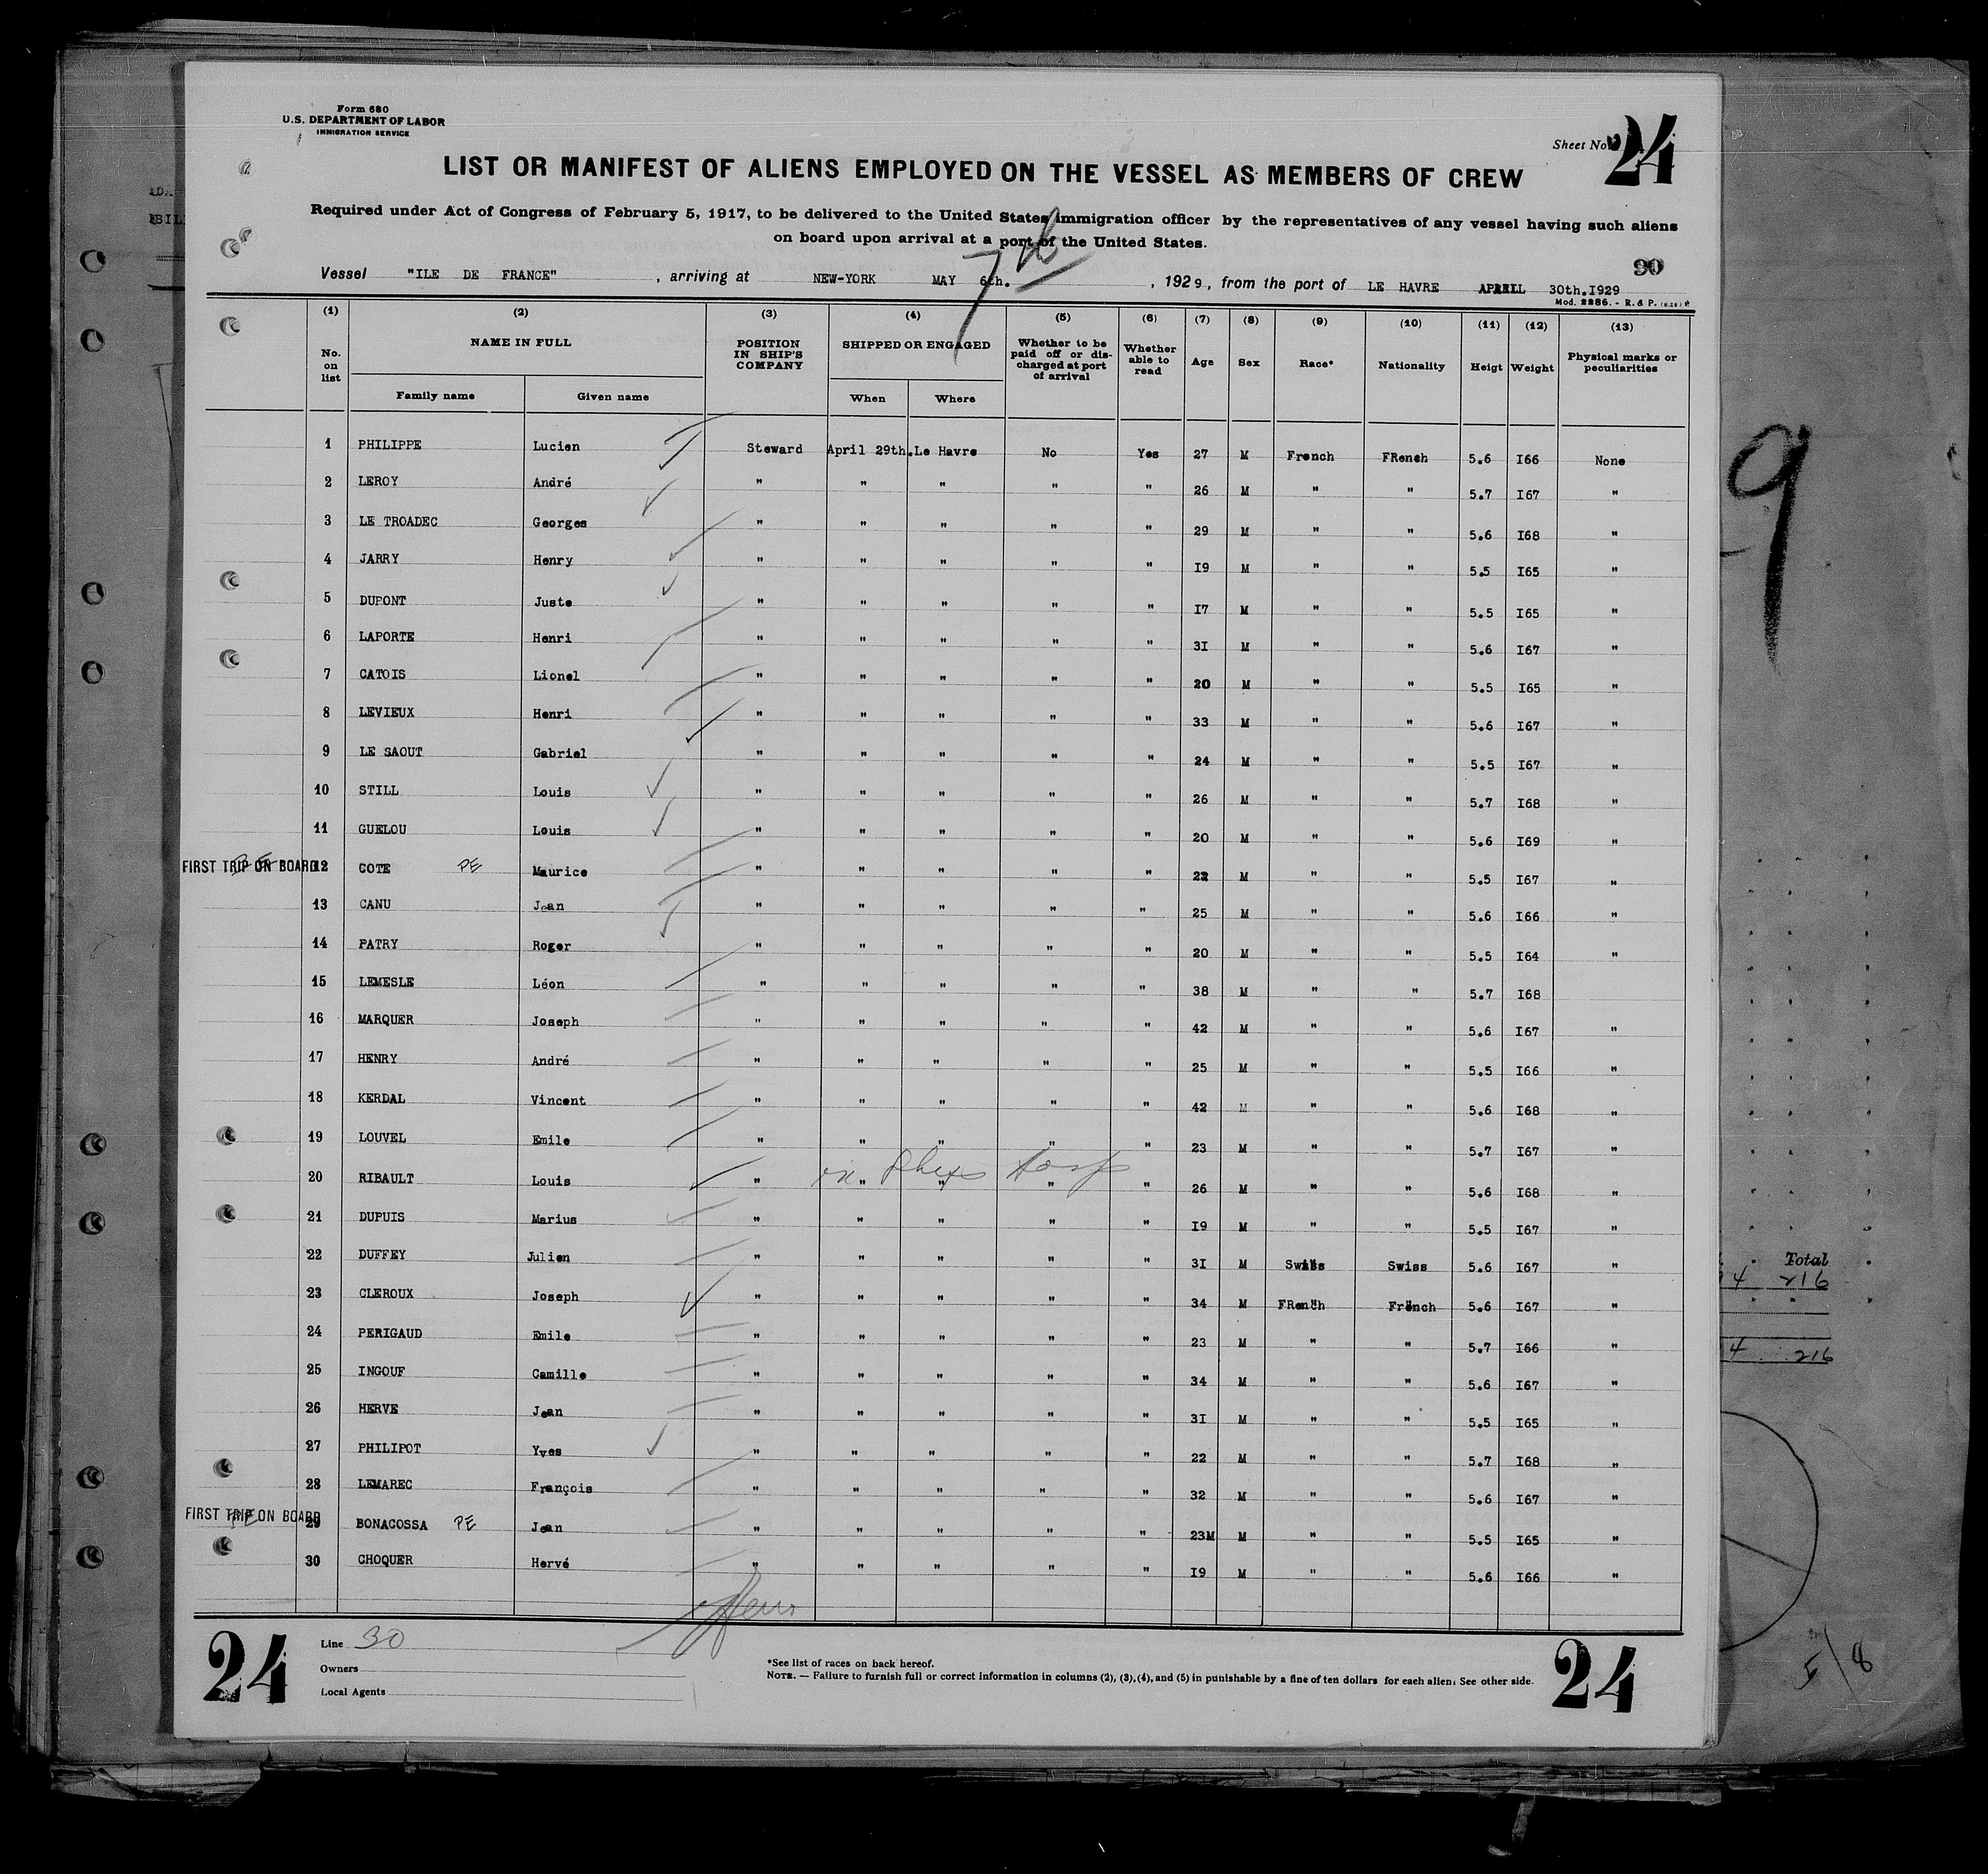 Form 680
U.S. DEPARTMENT OF LABOR
IMMIGRATION SERVICE
Sheet No 24
LIST OR MANIFEST OF ALIENS EMPLOYED ON THE VESSEL AS MEMBERS OF CREW
Required under Act of Congress of February 5, 1917, to be delivered to the United States immigration officer by the representatives of any vessel having such aliens
on board upon arrival at a port of the United States.
7th
90
Vessel "ILE DE FRANCE" , arriving at NEW-YORK MAY 6th. , 1929, from the port of LE HAVRE APRILL 30th.I929
Mod. 2286. - R. & P.
(1) (2) (3) (4) (5) (6) (7) (8) (9) (10) (11) (12) (13)
No. on list NAME IN FULL Family name Given name POSITION IN SHIP'S COMPANY SHIPPED OR ENGAGED When Where Whether to be paid off or discharged at port of arrival Whether able to read Age Sex Race* Nationality Heigt Weight Physical marks or peculiarities
1 PHILIPPE Lucien Steward April 29th. Le Havre No Yes 27 M French FRench 5.6 I66 None
2 LEROY André " " " " " 26 M " " 5.7 I67 "
3 LE TROADEC Georges " " " " " 29 M " " 5.6 I68 "
4 JARRY Henry " " " " " I9 M " " 5.5 I65 "
5 DUPONT Juste " " " " " I7 M " " 5.5 I65 "
6 LAPORTE Henri " " " " " 3I M " " 5.6 I67 "
7 CATOIS Lionel " " " " " 20 M " " 5.5 I65 "
8 LEVIEUX Henri " " " " " 33 M " " 5.6 I67 "
9 LE SAOUT Gabriel " " " " " 24 M " " 5.5 I67 "
10 STILL Louis " " " " " 26 M " " 5.7 I68 "
11 GUELOU Louis " " " " " 20 M " " 5.6 I69 "
FIRST TRIP ON BOARD 12 COTE PE Maurice " " " " " 22 M " " 5.5 I67 "
13 CANU Jean " " " " " 25 M " " 5.6 I66 "
14 PATRY Roger " " " " " 20 M " " 5.5 I64 "
15 LEMESLE Léon " " " " " 38 M " " 5.7 I68
16 MARQUER Joseph " " " " " 42 M " " 5.6 I67 "
17 HENRY André " " " " " 25 M " " 5.5 I66 "
18 KERDAL Vincent " " " " " 42 M " " 5.6 I68 "
19 LOUVEL Emile " " " " " 23 M " " 5.7 I67 "
20 RIBAULT Louis " " " " " 26 M " " 5.6 I68 "
21 DUPUIS Marius " " " " " I9 M " " 5.5 I67 "
22 DUFFEY Julien " " " " " 3I M Swiss Swiss 5.6 I67 "
23 CLEROUX Joseph " " " " " 34 M FRench French 5.6 I67 "
24 PERIGAUD Emile " " " " " 23 M " " 5.7 I66 "
25 INGOUF Camille " " " " " 34 M " " 5.6 I67 "
26 HERVE Jean " " " " " 3I M " " 5.5 I65 "
27 PHILIPOT Yves " " " " " 22 M " " 5.7 I68 "
28 LEMAREC François " " " " " 32 M " " 5.6 I67 "
FIRST TRIP ON BOARD 29 BONACOSSA PE Jean " " " " " 23M M " " 5.5 I65 "
30 CHOQUER Hervé " " " " " I9 M " " 5.6 I66 "
24
Line 30
Owners
Local Agents
*See list of races on back hereof.
NOTE. — Failure to furnish full or correct information in columns (2), (3), (4), and (5) in punishable by a fine of ten dollars for each alien. See other side.
24
9
Total
4 216
4 216
5/8